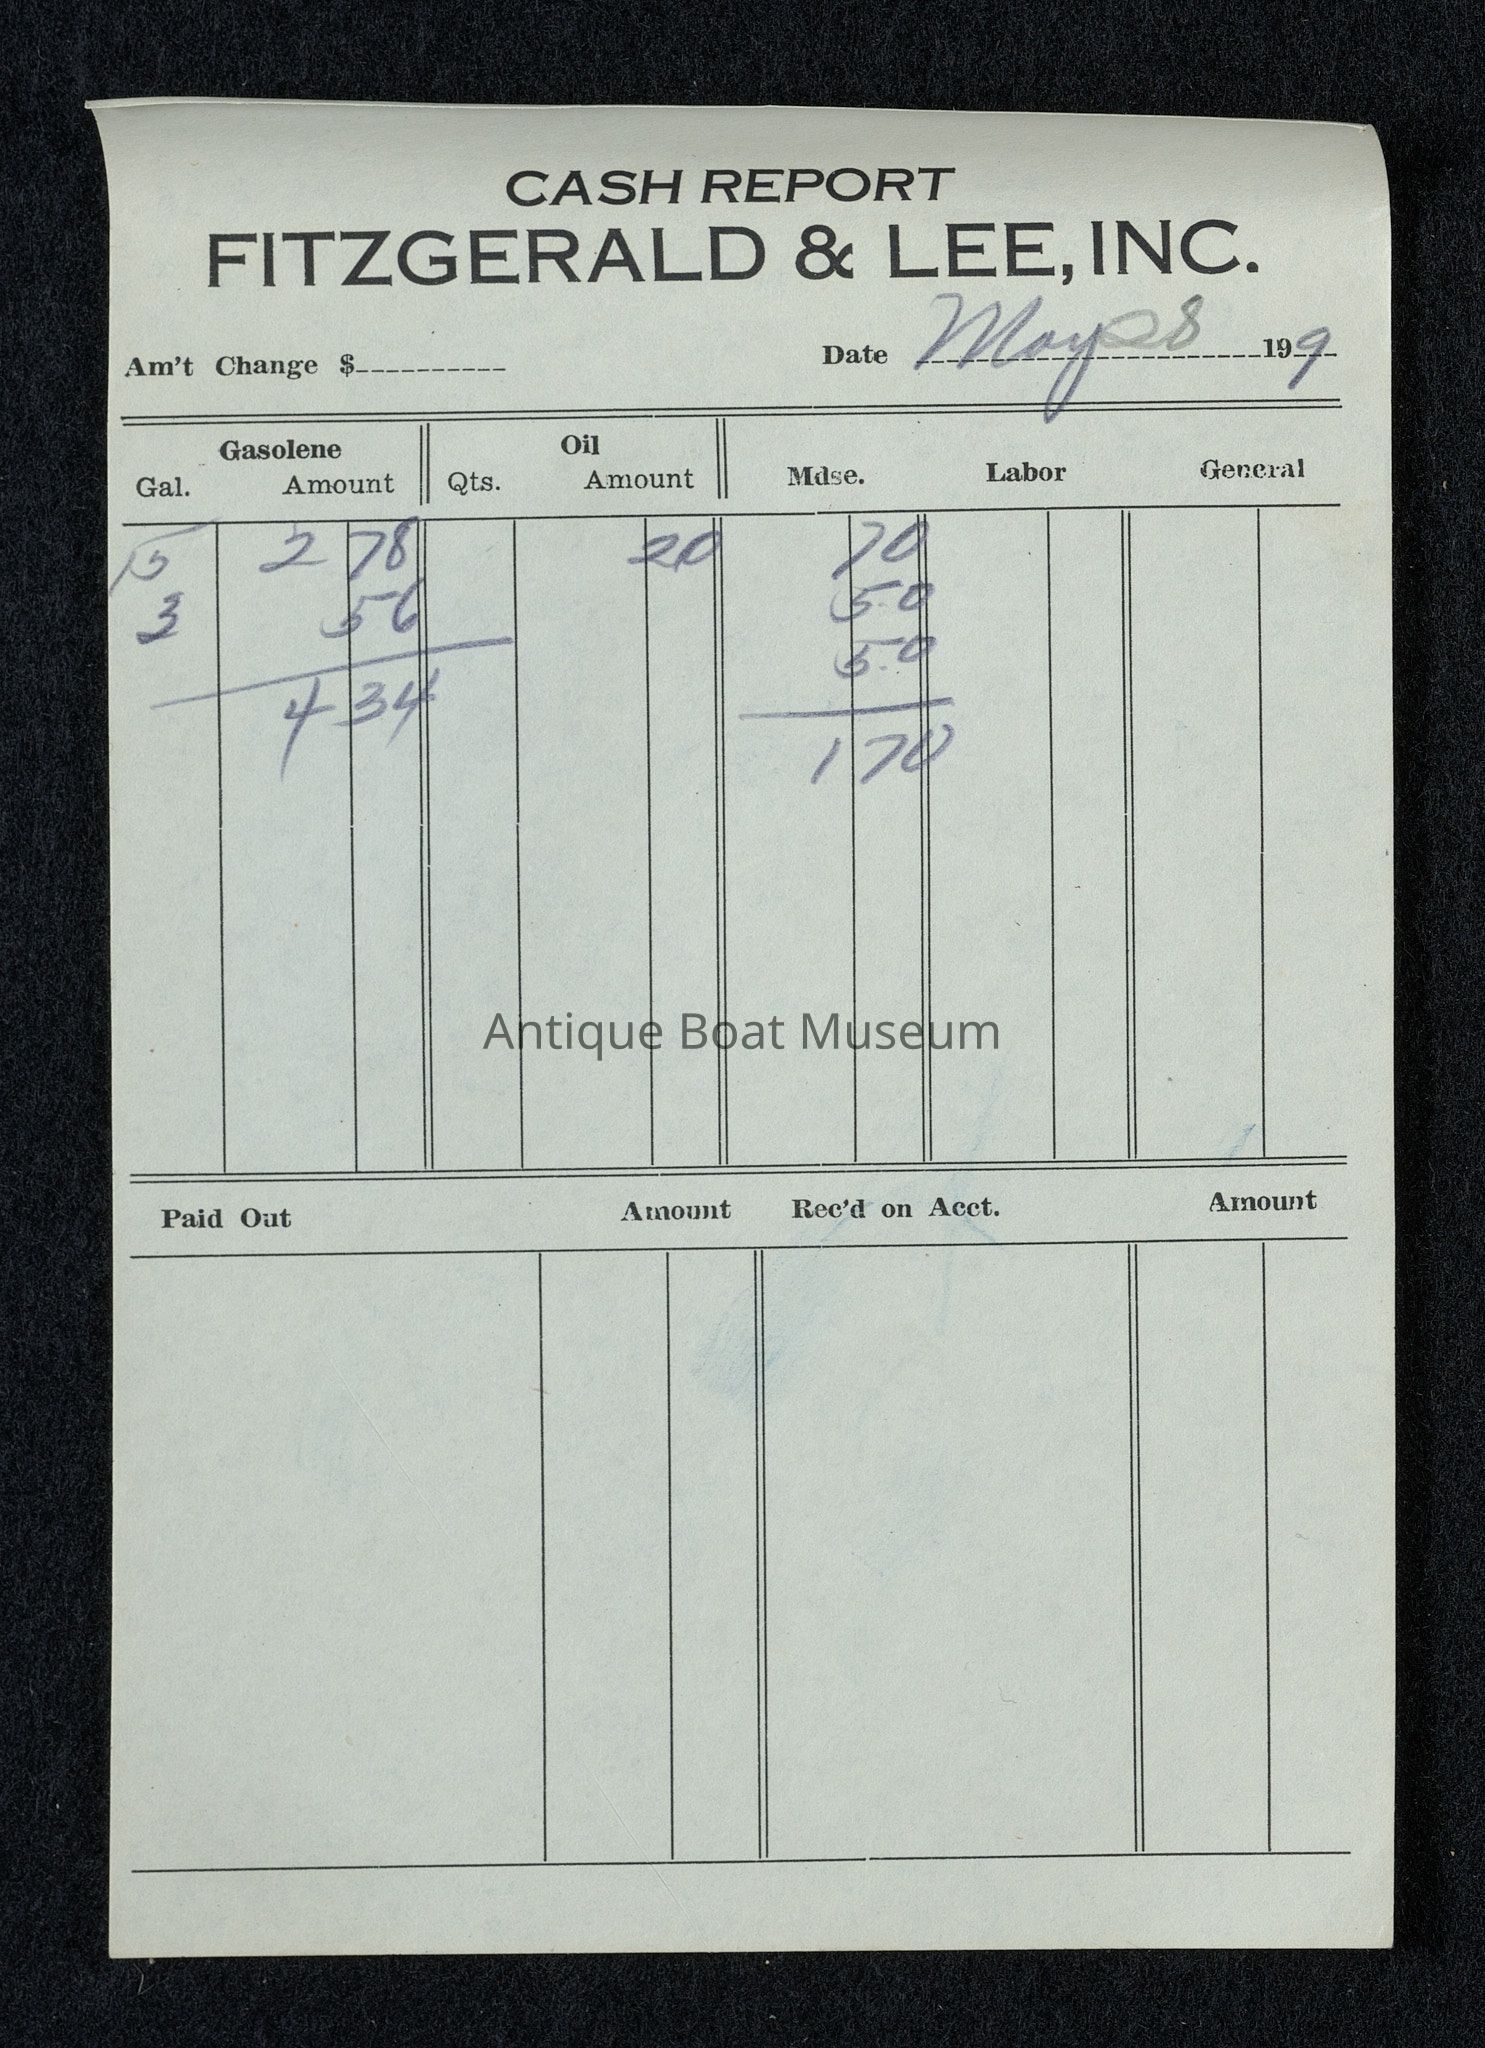 CASH REPORT
FITZGERALD & LEE, INC.
Am't Change $ Date May 28 199
Gasolene Oil
Gal. Amount Qts. Amount Mdse. Labor General
15 2 78 20 70
3 56 50
50
4 34
1 70
Antique Boat Museum
Paid Out Amount Rec'd on Acct. Amount